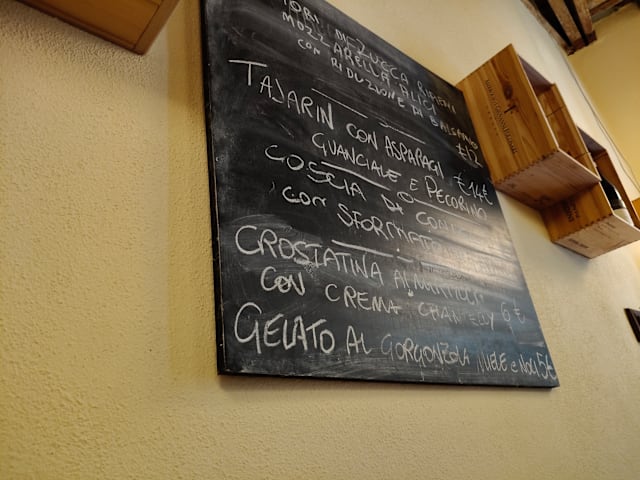 FIORI DI ZUCCA RIPIENI
MOZZARELLA ALICI
CON RIDUZIONE DI BALSAMICO
€12
TAJARIN CON ASPARAGI €14€
GUANCIALE E PECORINO
COSCIA DI
CON SFORMATINO
CROSTATINA AI MIRTILLI
CON CREMA CHANTILLY 6€
GELATO AL GORGONZOLA MIELE e NOCI 5€